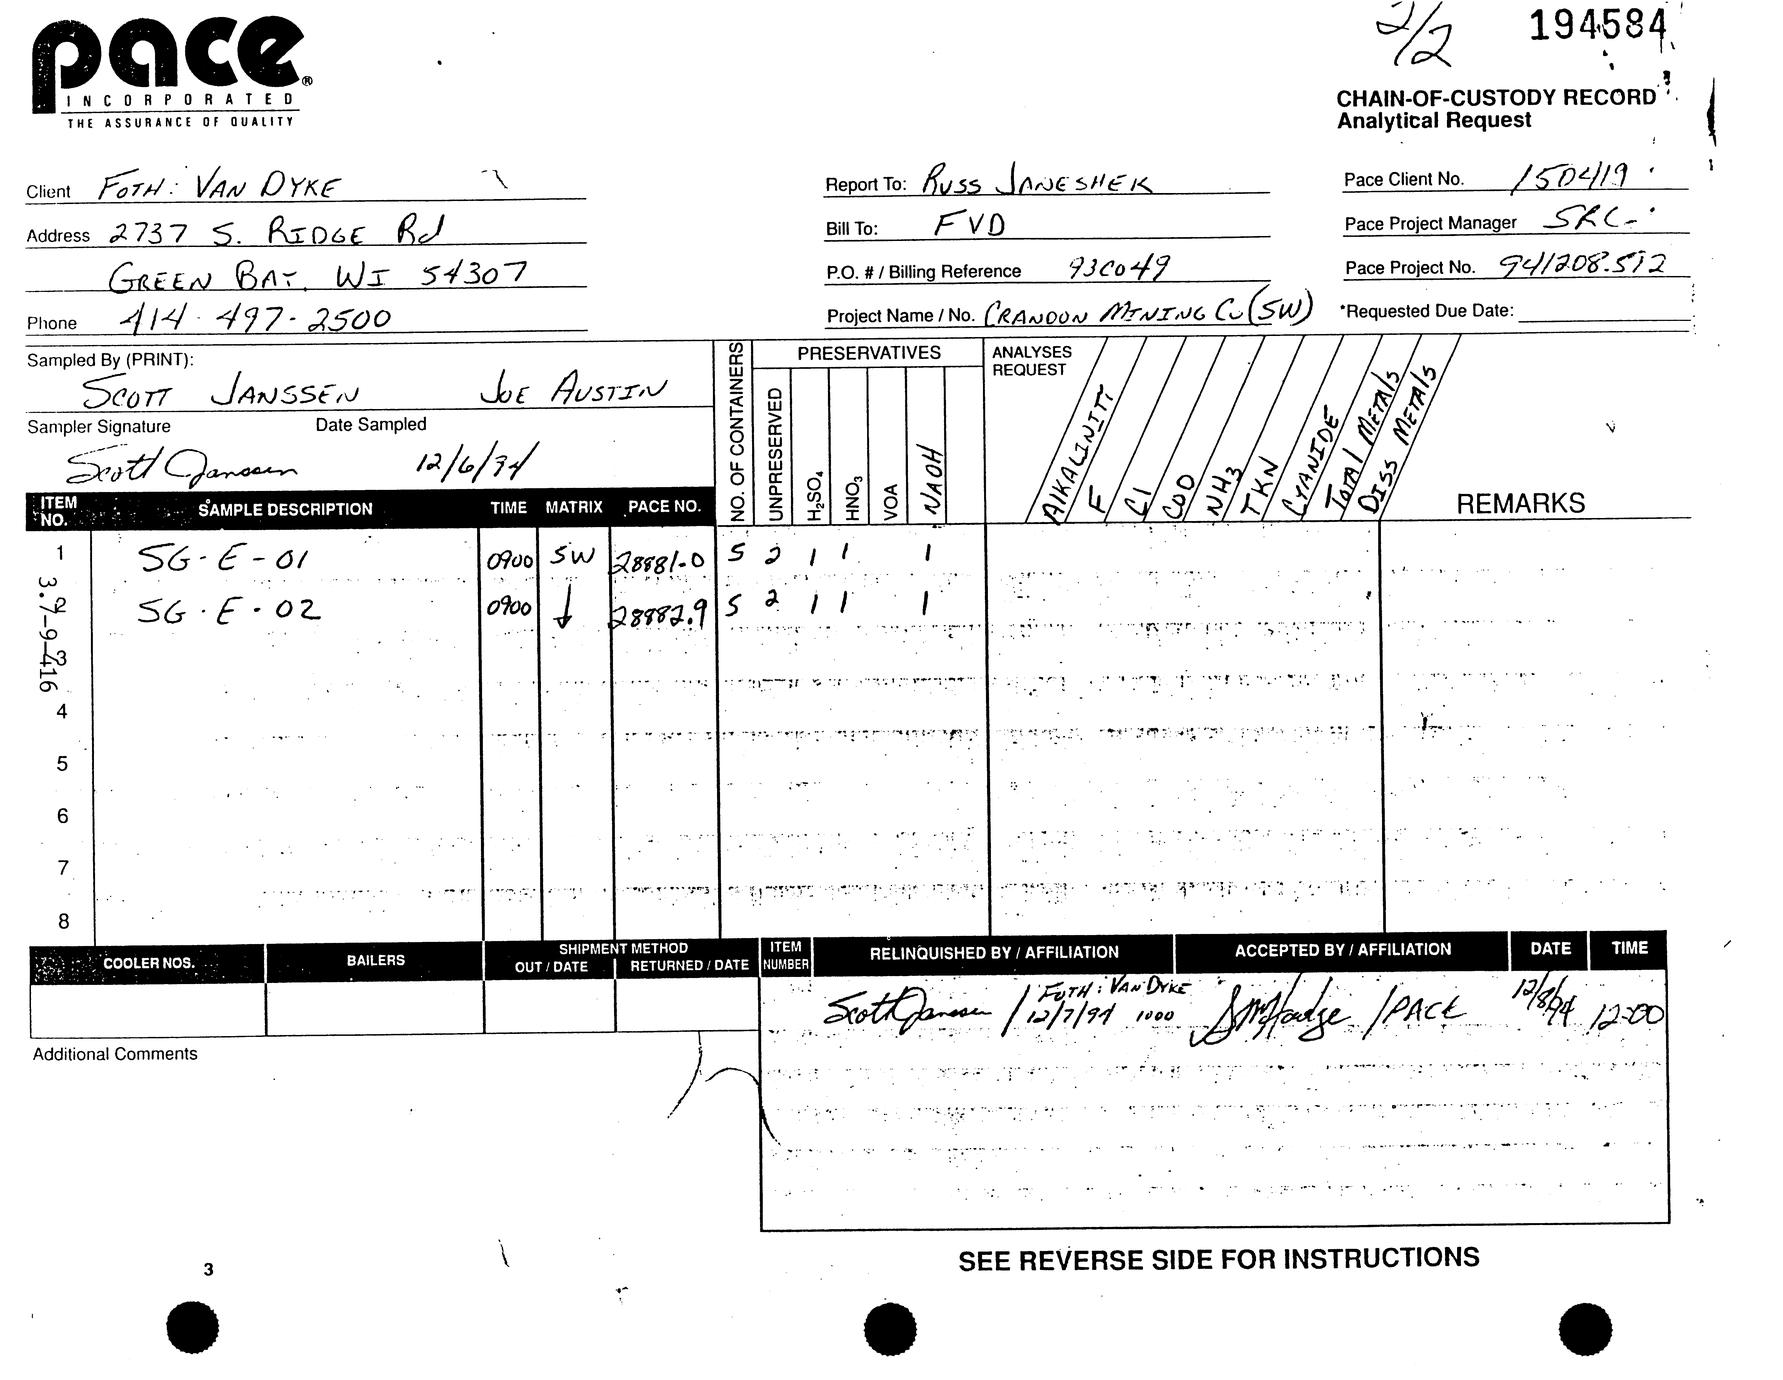 pace®
INCORPORATED
THE ASSURANCE OF QUALITY
2/2 194584
CHAIN-OF-CUSTODY RECORD
Analytical Request
Client FOTH: VAN DYKE
Address 2737 S. RIDGE Rd
GREEN BAY, WI 54307
Phone 414-497-2500
Report To: RUSS JANESHEK
Bill To: FVD
P.O. # / Billing Reference 93C049
Project Name / No. CRANDON MINING Co (SW)
Pace Client No. 150419
Pace Project Manager SRC
Pace Project No. 941208.512
*Requested Due Date:
Sampled By (PRINT):
SCOTT JANSSEN JOE AUSTIN
Sampler Signature Date Sampled
Scott Janssen 12/6/94
NO. OF CONTAINERS
PRESERVATIVES
UNPRESERVED
H2SO4
HNO3
VOA
NAOH
ANALYSES
REQUEST
AlKALINITY
F
Cl
COD
NH3
TKN
CYANIDE
TOTAL METALS
DISS METALS
REMARKS
ITEM NO. SAMPLE DESCRIPTION TIME MATRIX PACE NO.
1 SG-E-01 0900 SW 28881.0 5 2 1 1 1
2 SG-E-02 0900 ↓ 28882.9 5 2 1 1 1
3
4
5
6
7
8
COOLER NOS. BAILERS SHIPMENT METHOD
OUT / DATE RETURNED / DATE
ITEM NUMBER RELINQUISHED BY / AFFILIATION ACCEPTED BY / AFFILIATION DATE TIME
Scott Janssen / FOTH: VAN DYKE 12/7/94 1000 /PACE 12/8/94 12:00
Additional Comments
SEE REVERSE SIDE FOR INSTRUCTIONS
3